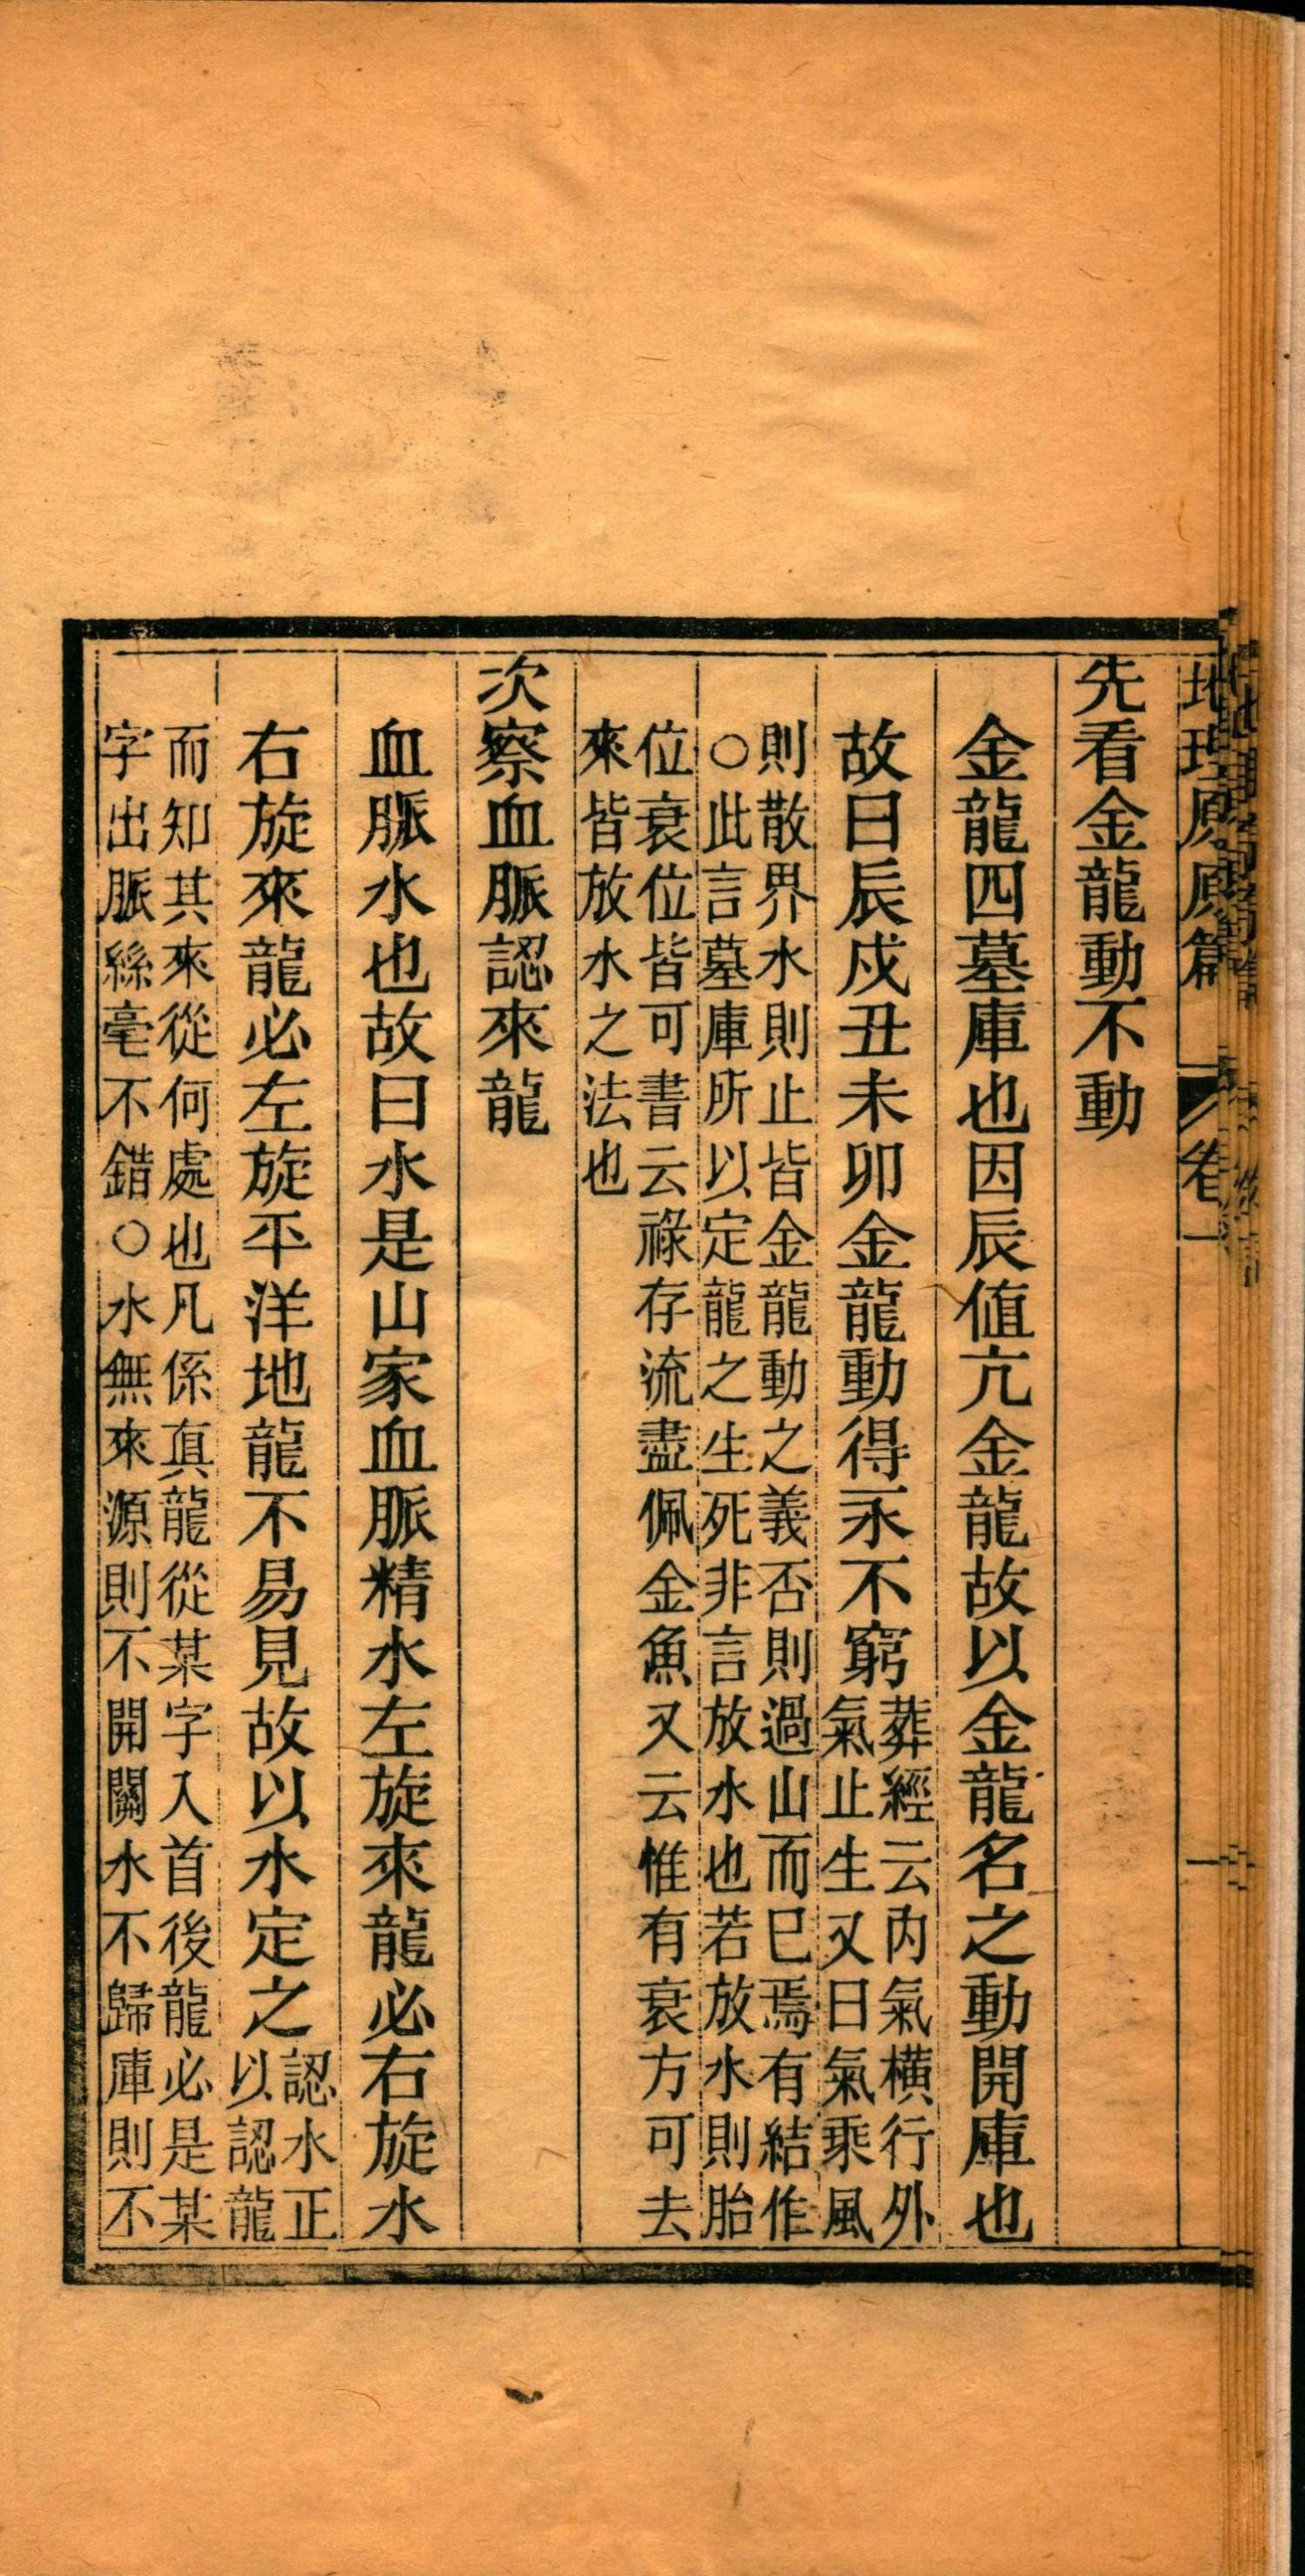 地理原原篇 卷一 一
先看金龍動不動
金龍四墓庫也因辰值亢金龍故以金龍名之動開庫也
故曰辰戍丑未卯金龍動得永不窮
葬經云内氣橫行外
氣止生又曰氣乘風
則散界水則止皆金龍動之義否則過山而巳焉有結作
○此言墓庫所以定龍之生死非言放水也若放水則胎
位衰位皆可書云祿存流盡佩金魚又云惟有衰方可去
來皆放水之法也
次察血脈認來龍
血脈水也故曰水是山家血脈精水左旋來龍必右旋水
右旋來龍必左旋平洋地龍不易見故以水定之
認水正
以認龍
而知其來從何處也凡係眞龍從某字入首後龍必是某
字出脈絲毫不錯○水無來源則不開關水不歸庫則不